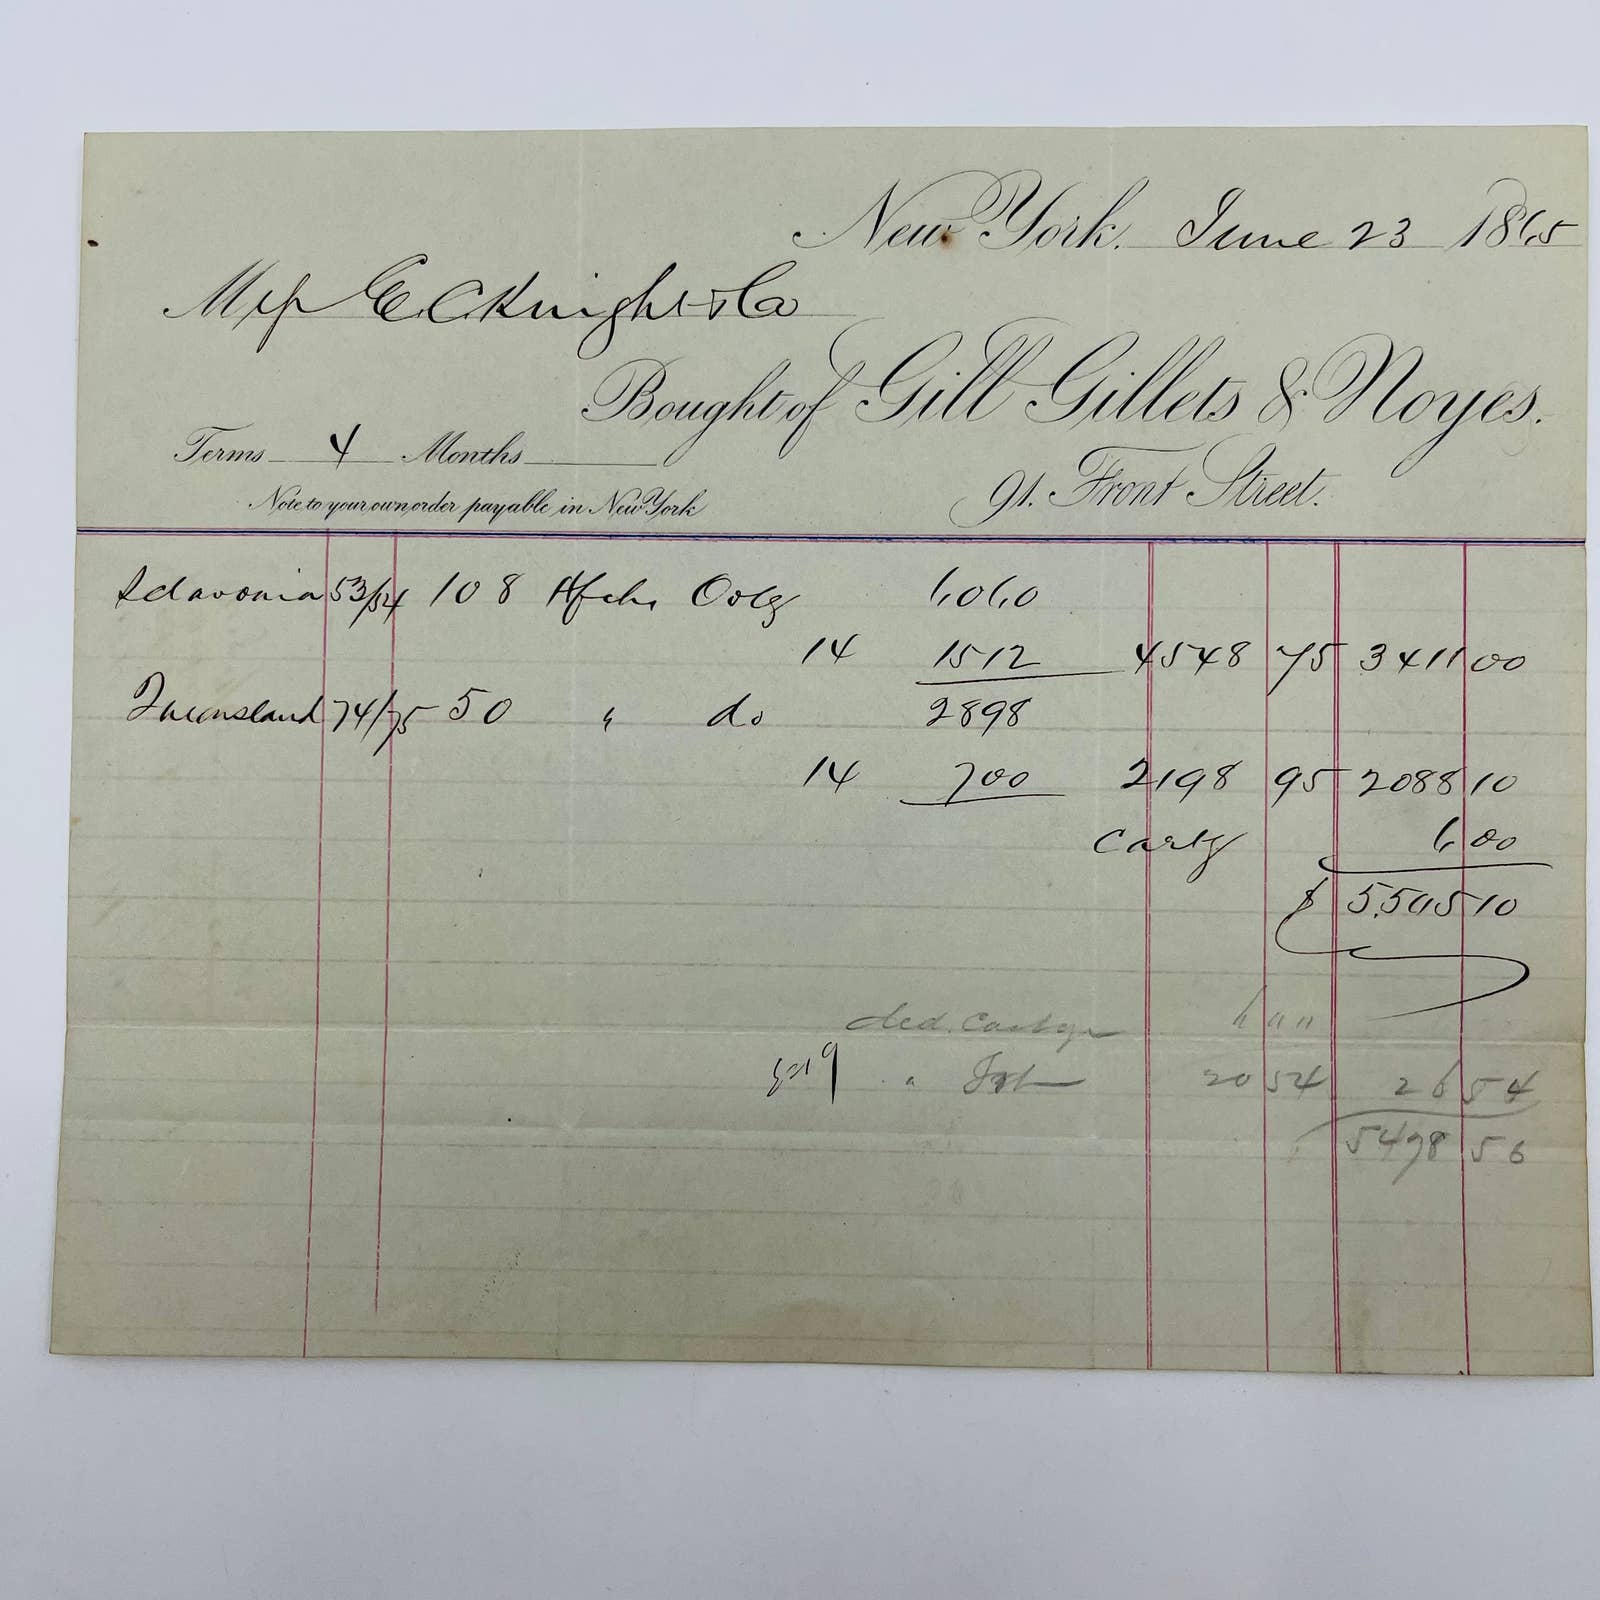 New York. June 23 1865
Mess E C Knight & Co
Bought of Gill Gillets & Noyes.
Terms 4 Months
91. Front Street.
Note to your own order payable in New York
Sclavonia 53/54 108 Hf chs Oolg 6060
14 1512 4548 75 3411 00
Queensland 74/75 50 " do 2898
14 700 2198 95 2088 10
Cartg 6 00
$ 5.505 10
ded. Cartge 6 00
" Int 20 54 26 54
5478 56